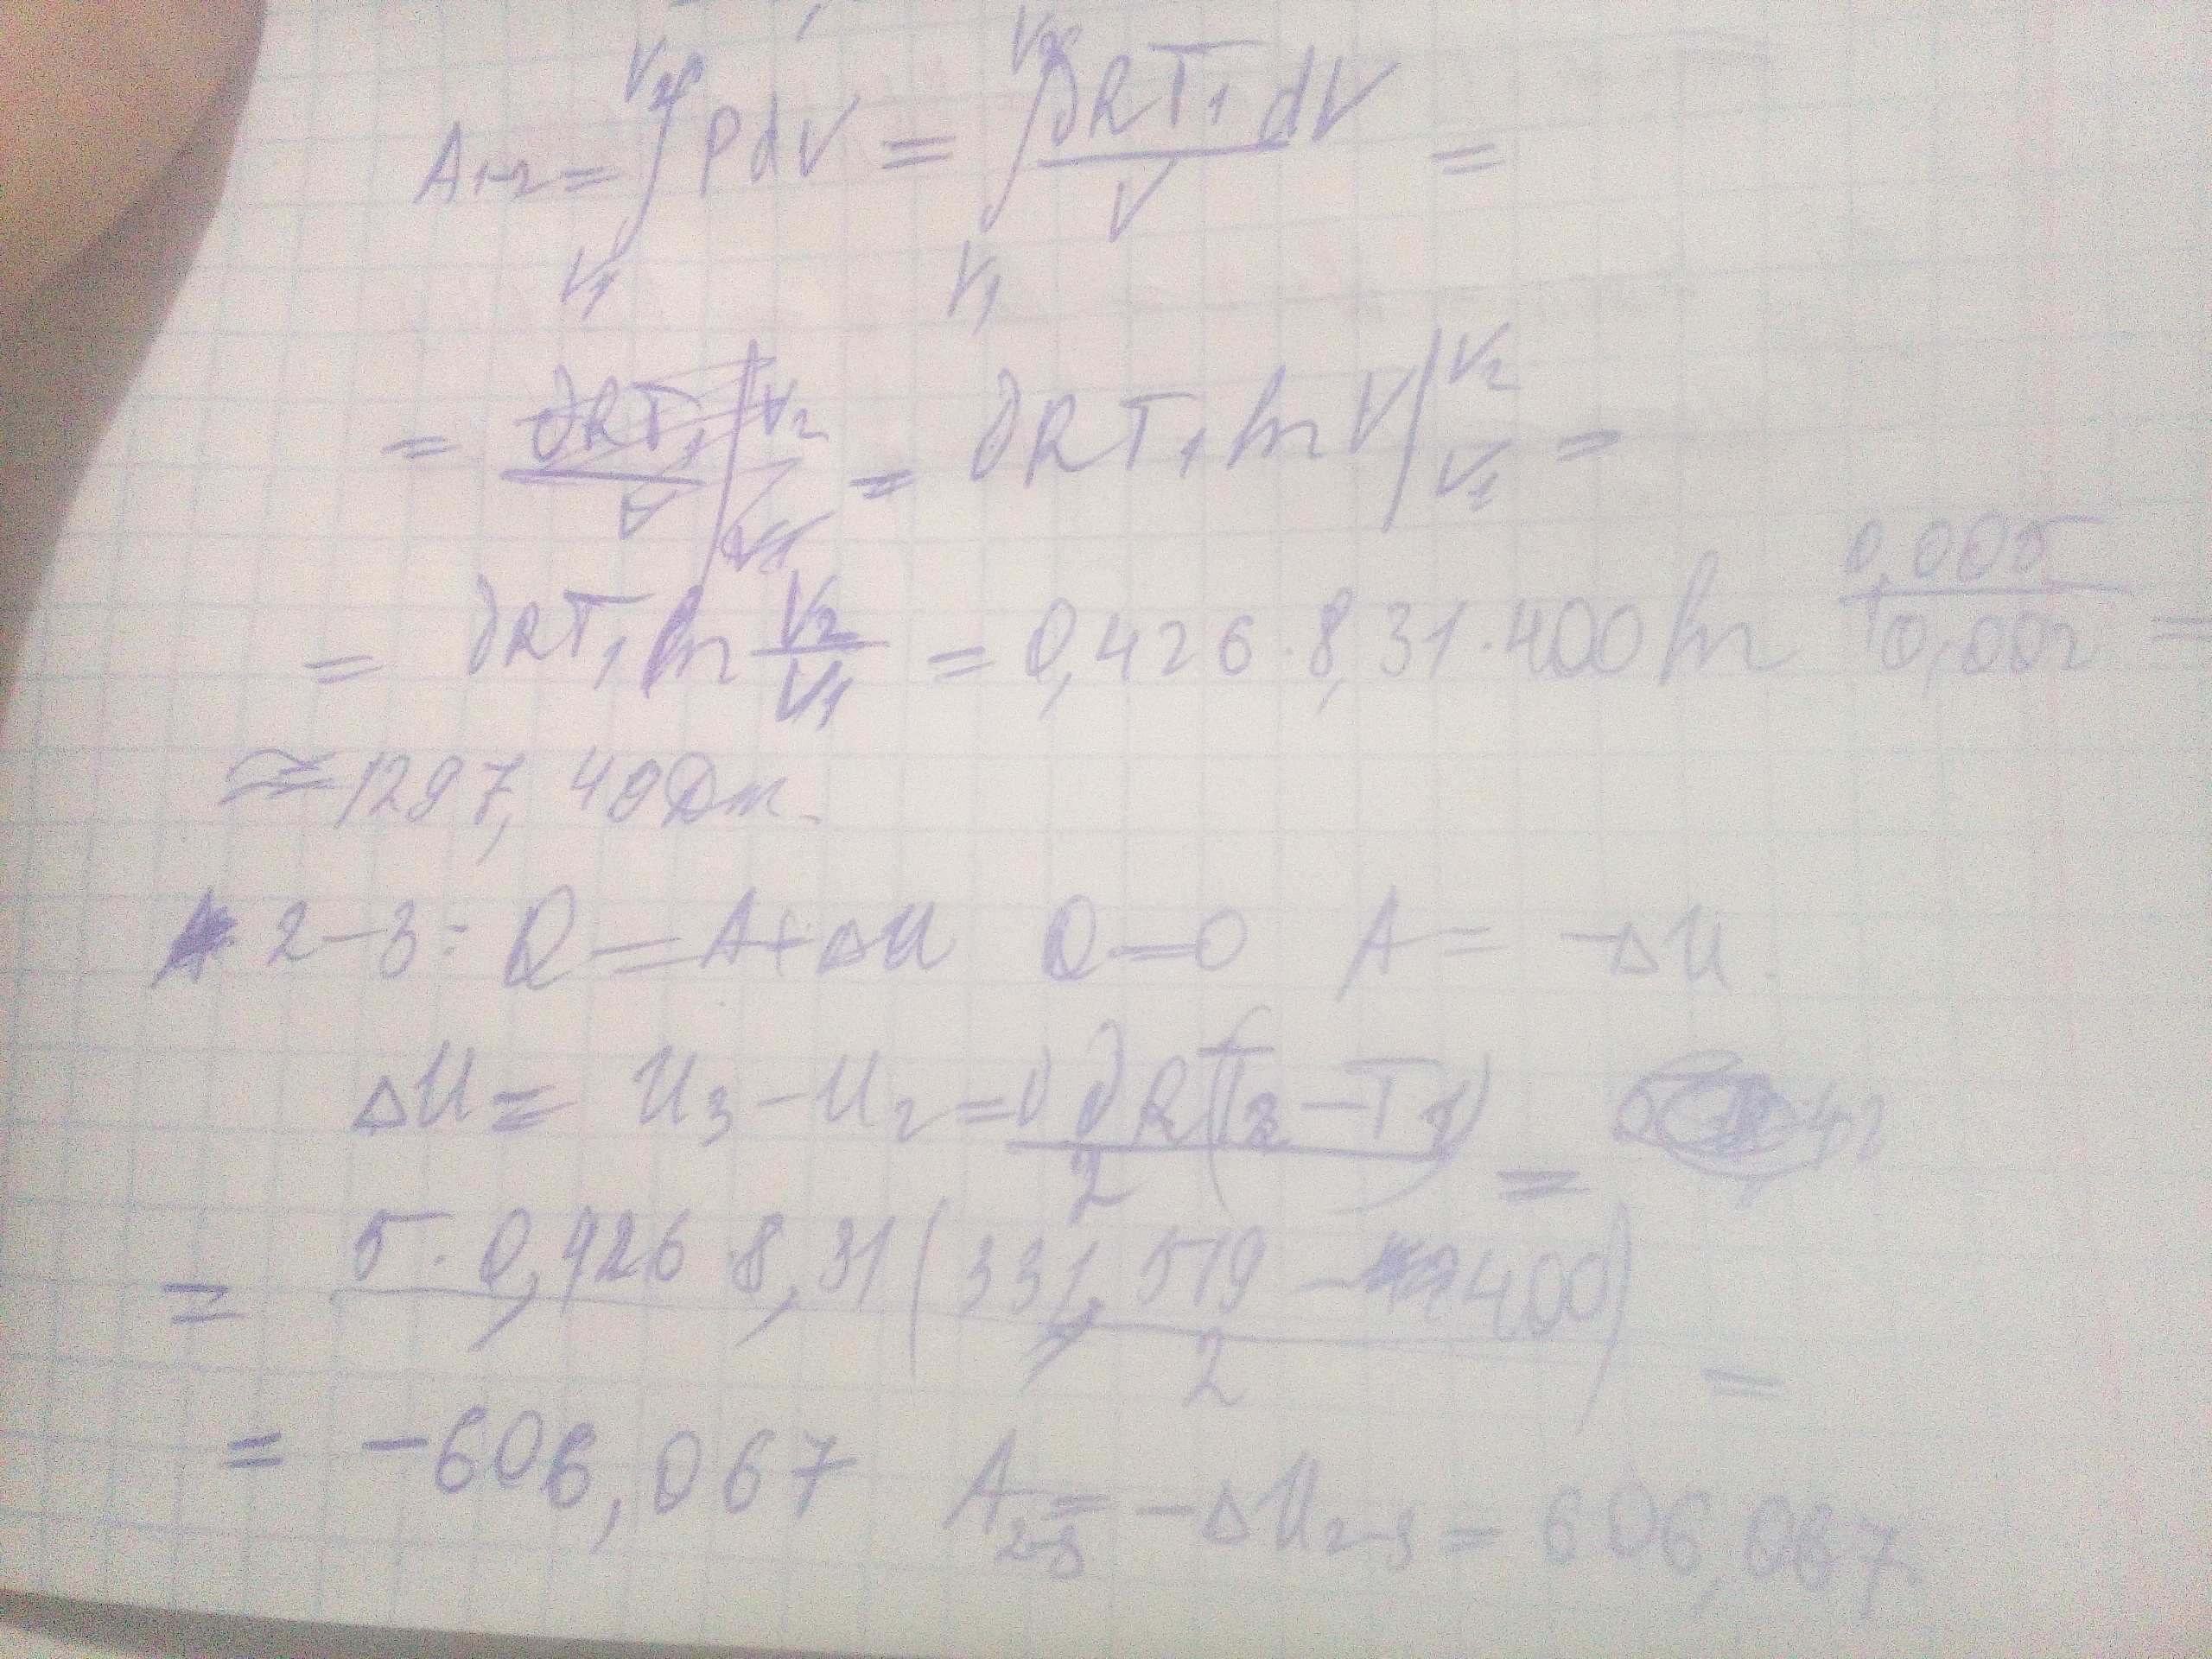 A₁₋₂ = ∫ᵥ₁ᵛ² PdV = ∫ᵥ₁ᵛ² ϑRT₁dV / V =
= ϑRT₁ / V |ᵥ₁ᵛ² = ϑRT₁ ln V |ᵥ₁ᵛ² =
= ϑRT₁ ln V₂/V₁ = 0,426·8,31·400 ln 0,005/0,002 =
≈ 1297,49 Дж.
2–3: Q = A + ΔU Q = 0 A = –ΔU.
ΔU = U₃ – U₂ = ϑR(T₃ – T₁) / 2 =
= 5·0,426·8,31(331,519 – 400) / 2 =
= –606,067 A₂₋₃ = –ΔU₂₋₃ = 606,067